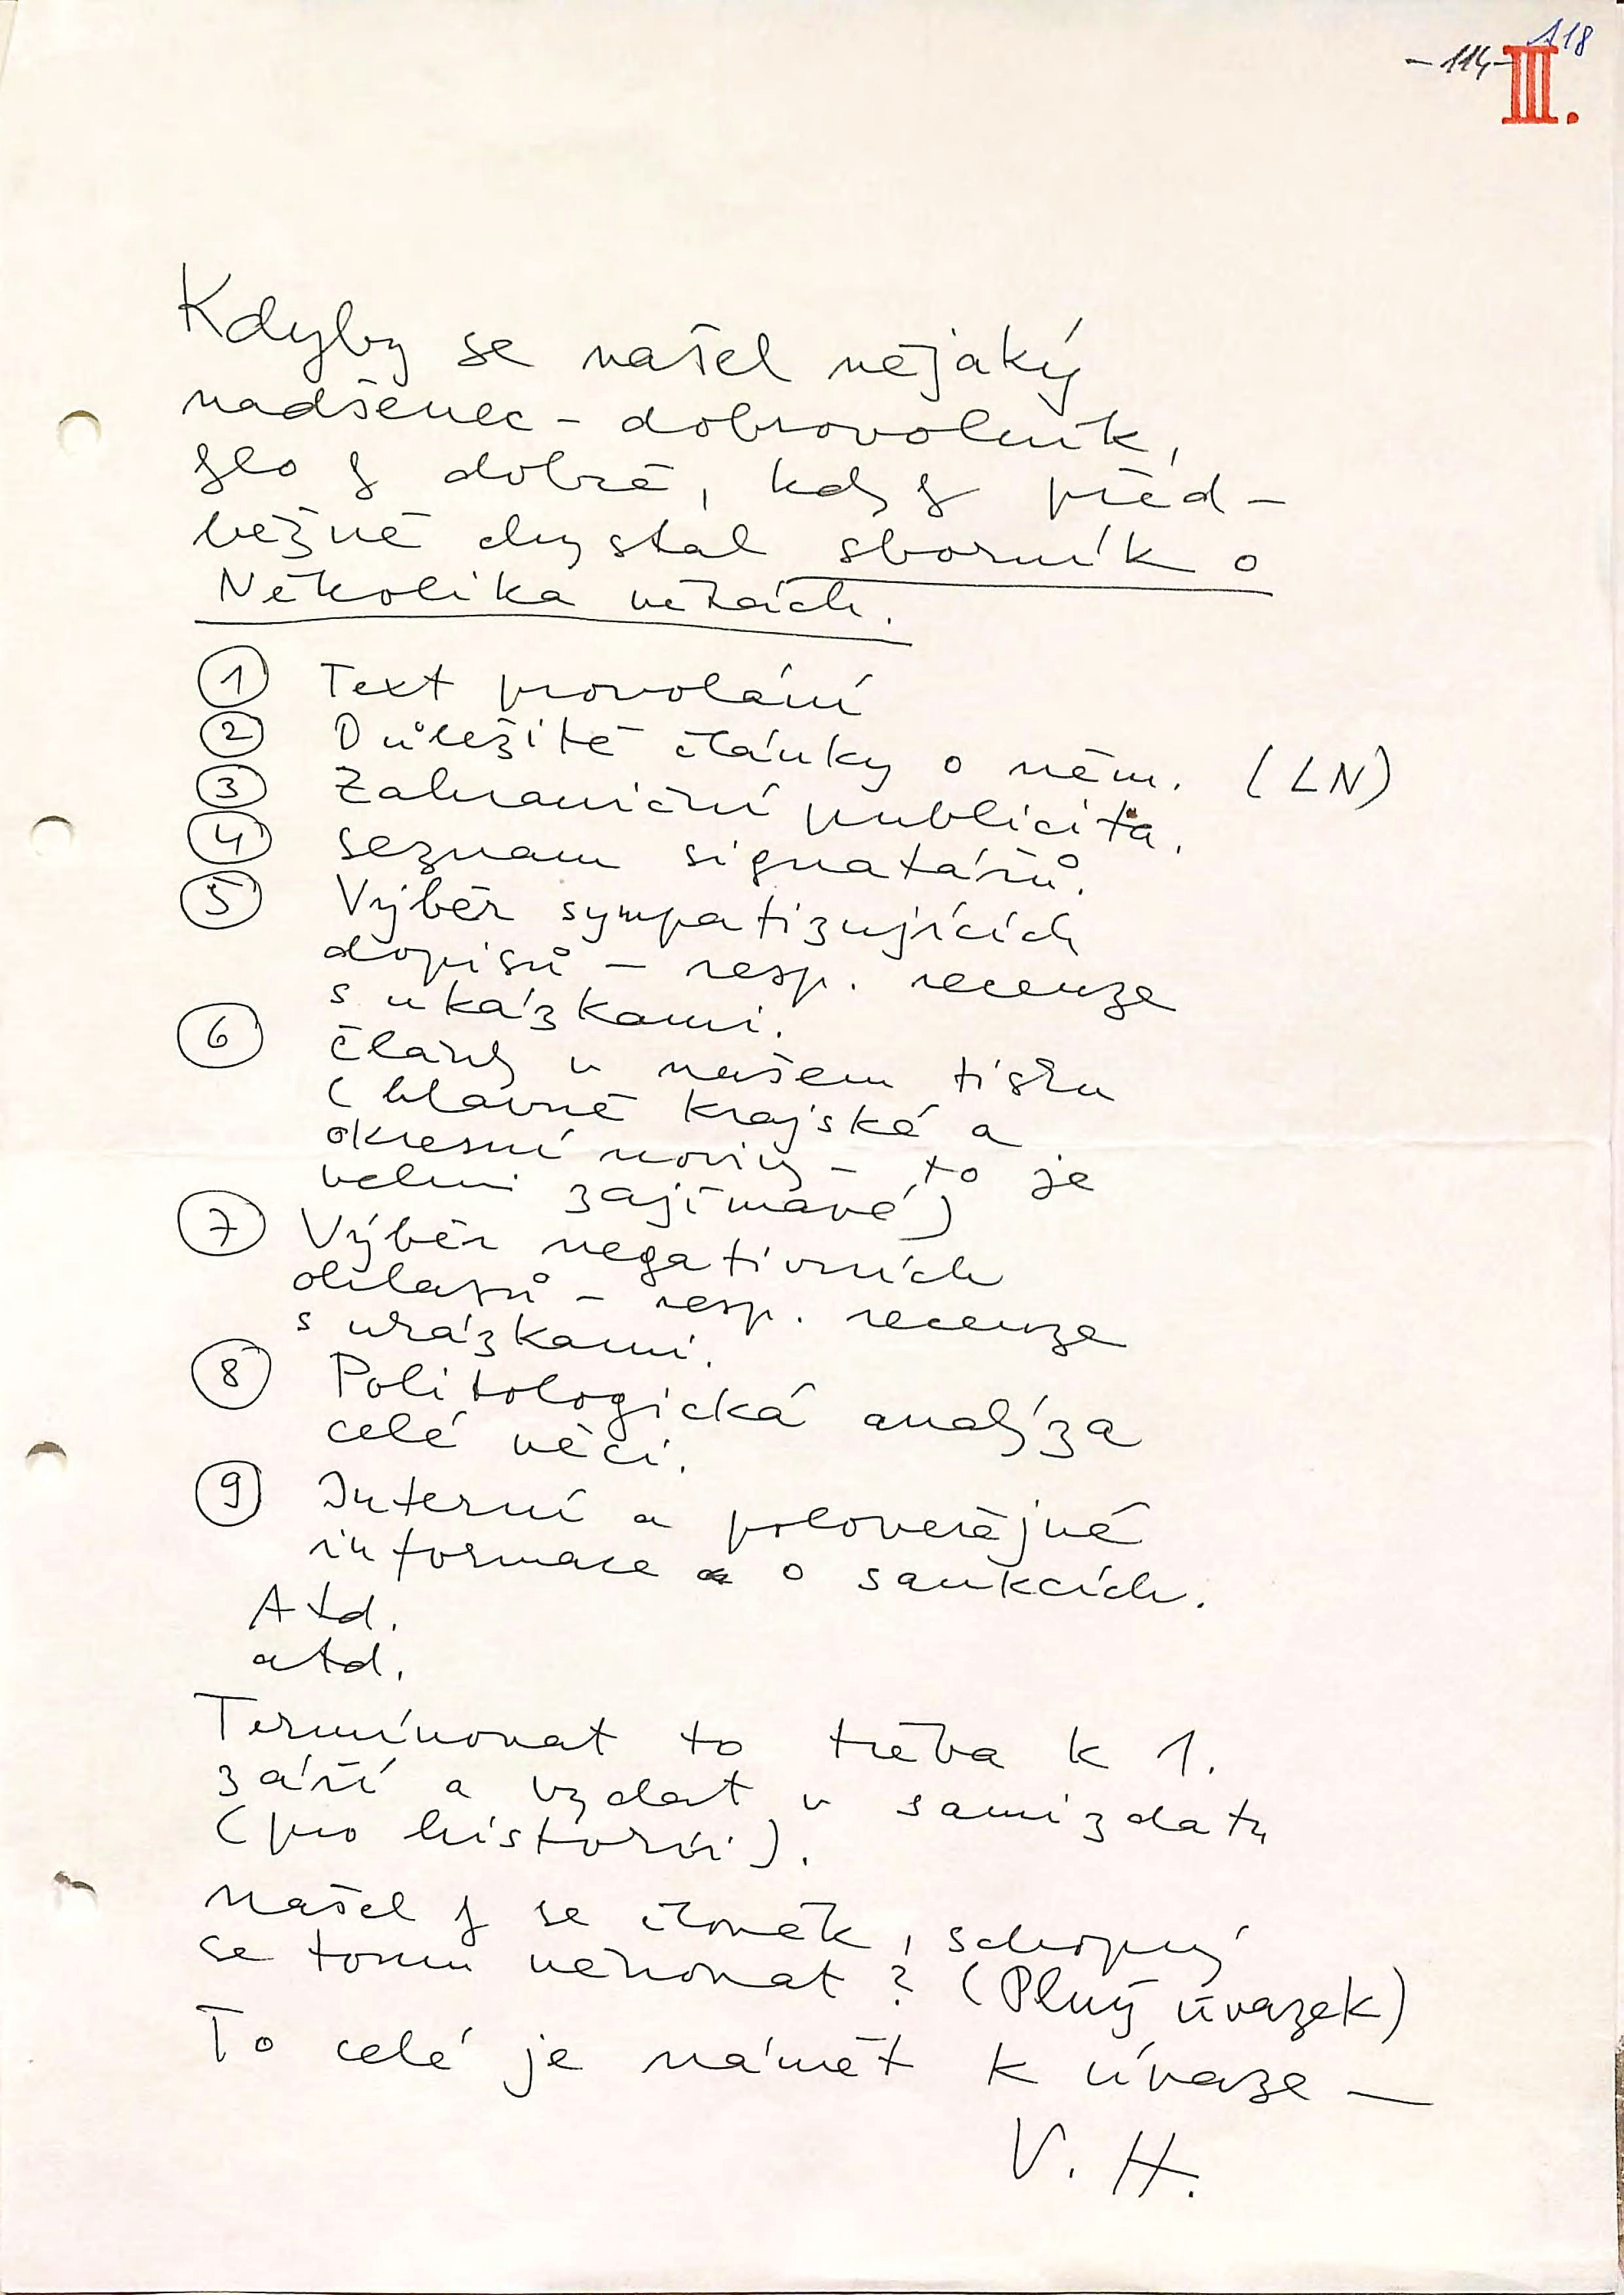 118
- 114 -
III.
Kdyby se našel nějaký
nadšenec - dobrovolník,
bylo by dobré, kdyby před-
běžně chystal sborník o
Několika větách.
1 Text provolání
2 Důležité články o něm. (LN)
3 Zahraniční publicita.
4 seznam signatářů.
5 Výběr sympatizujících
dopisů - resp. recenze
s ukázkami.
6 články v našem tisku
(hlavně krajské a
okresní noviny - to je
velmi zajímavé)
7 Výběr negativních
ohlasů - resp. recenze
s ukázkami.
8 Politologická analýza
celé věci.
9 Interní a poloveřejné
informace o sankcích.
Atd.
atd.
Termínovat to třeba k 1.
září a vydat v samizdatu
(pro historii).
Našel by se člověk, schopný
se tomu věnovat? (Plný úvazek)
To celé je námět k úvaze —
V. H.